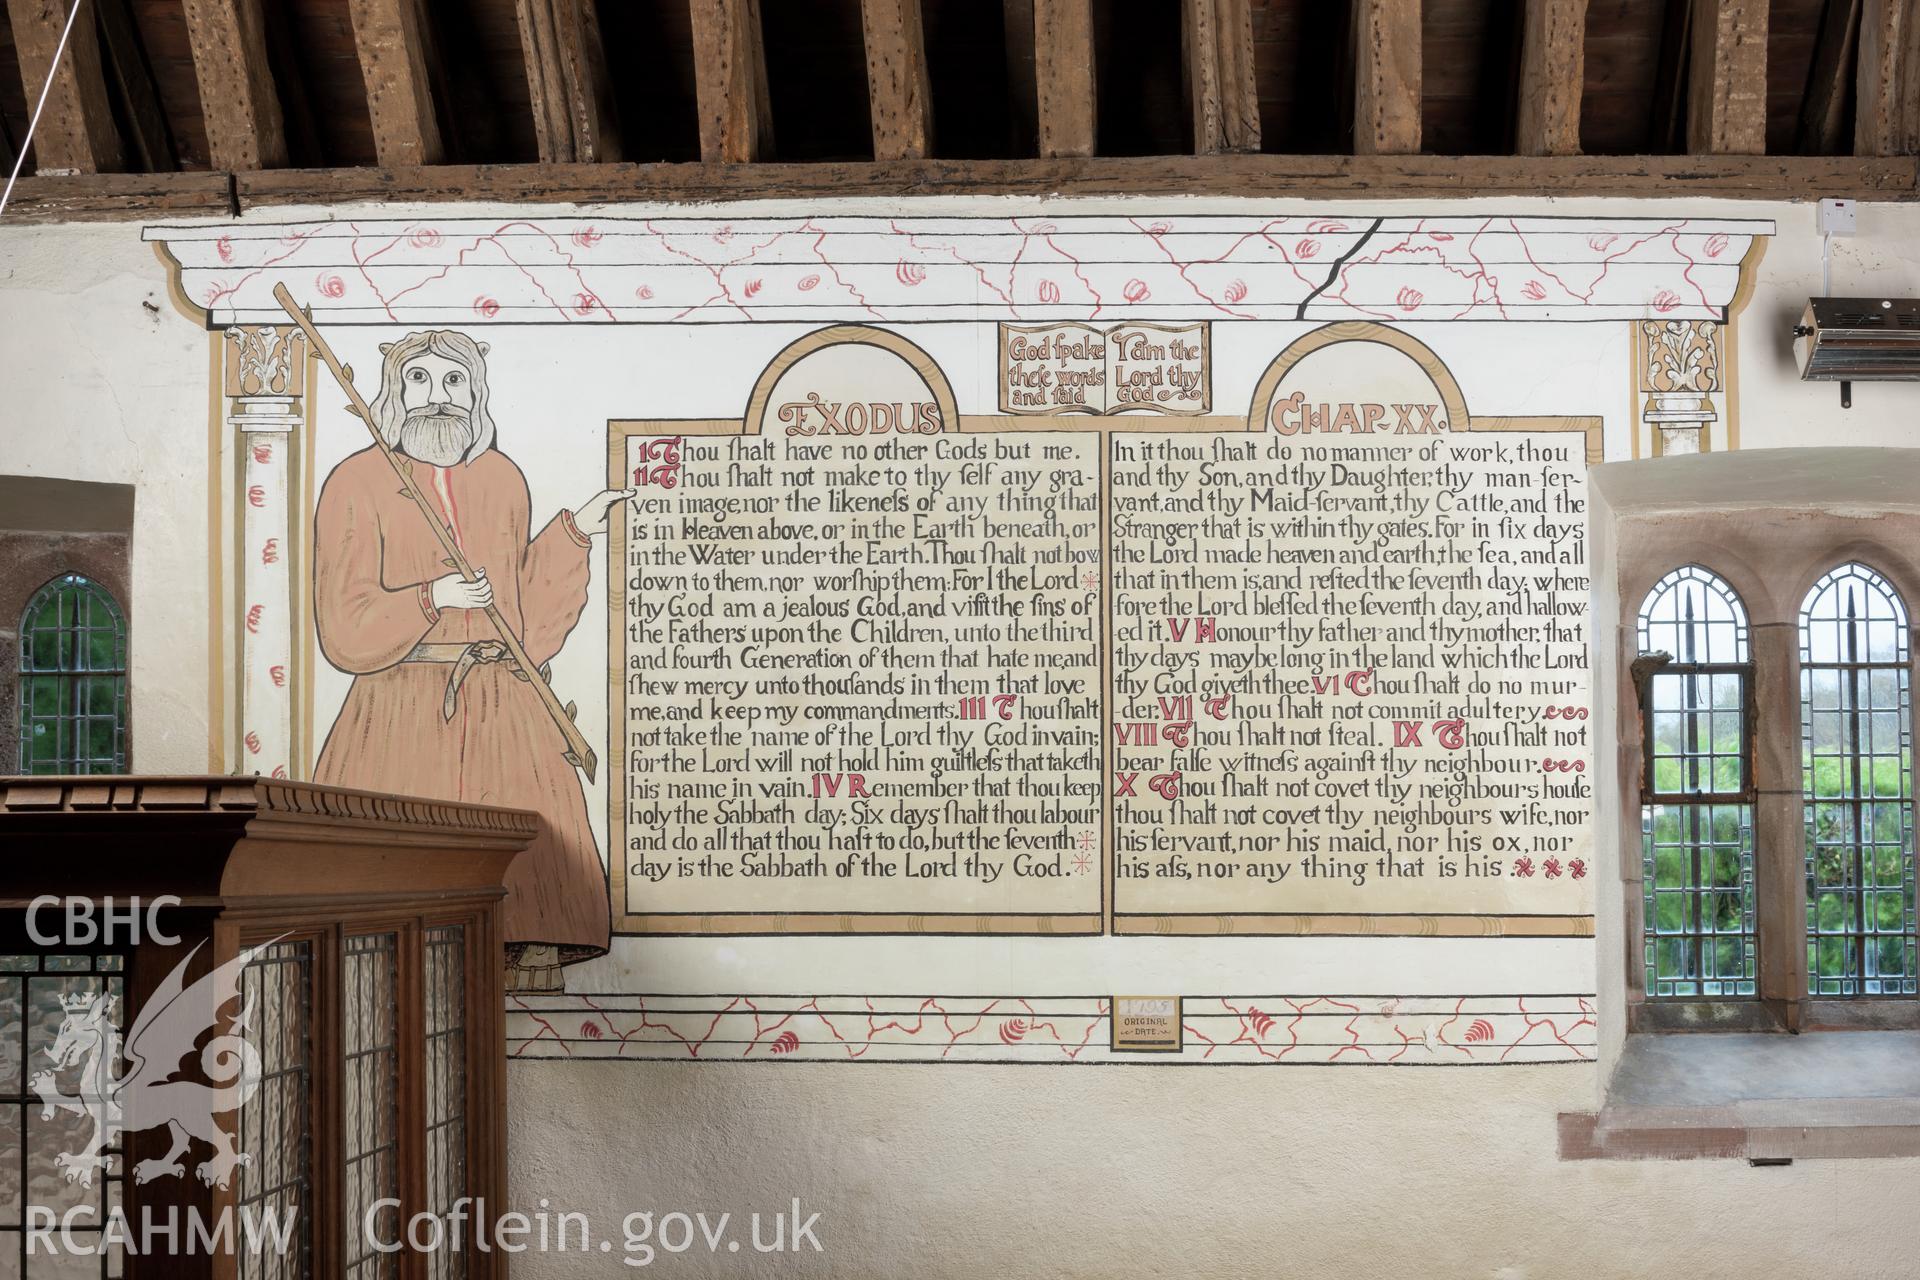 God ſpake
theſe words
and ſaid
I am the
Lord thy
God
EXODUS
I Thou ſhalt have no other Gods but me.
II Thou ſhalt not make to thy ſelf any gra-
ven image, nor the likeneſs of any thing that
is in Heaven above, or in the Earth beneath, or
in the Water under the Earth. Thou ſhalt not bow
down to them, nor worſhip them: For I the Lord
thy God am a jealous God, and viſit the ſins of
the Fathers upon the Children, unto the third
and fourth Generation of them that hate me, and
ſhew mercy unto thouſands in them that love
me, and keep my commandments. III Thou ſhalt
not take the name of the Lord thy God in vain;
for the Lord will not hold him guiltleſs that taketh
his name in vain. IV Remember that thou keep
holy the Sabbath day; Six days ſhalt thou labour
and do all that thou haſt to do, but the ſeventh
day is the Sabbath of the Lord thy God.
CHAP. XX.
In it thou ſhalt do no manner of work, thou
and thy Son, and thy Daughter, thy man-ſer-
vant, and thy Maid-ſervant, thy Cattle, and the
Stranger that is within thy gates. For in ſix days
the Lord made heaven and earth, the ſea, and all
that in them is, and reſted the ſeventh day; where
-fore the Lord bleſſed the ſeventh day, and hallow-
-ed it. V Honour thy father and thy mother, that
thy days may be long in the land which the Lord
thy God giveth thee. VI Thou ſhalt do no mur-
-der. VII Thou ſhalt not commit adultery.
VIII Thou ſhalt not ſteal. IX Thou ſhalt not
bear falſe witneſs againſt thy neighbour.
X Thou ſhalt not covet thy neighbours houſe
thou ſhalt not covet thy neighbours wife, nor
his ſervant, nor his maid, nor his ox, nor
his aſs, nor any thing that is his.
1795
ORIGINAL
DATE
CBHC
RCAHMW
Coflein.gov.uk